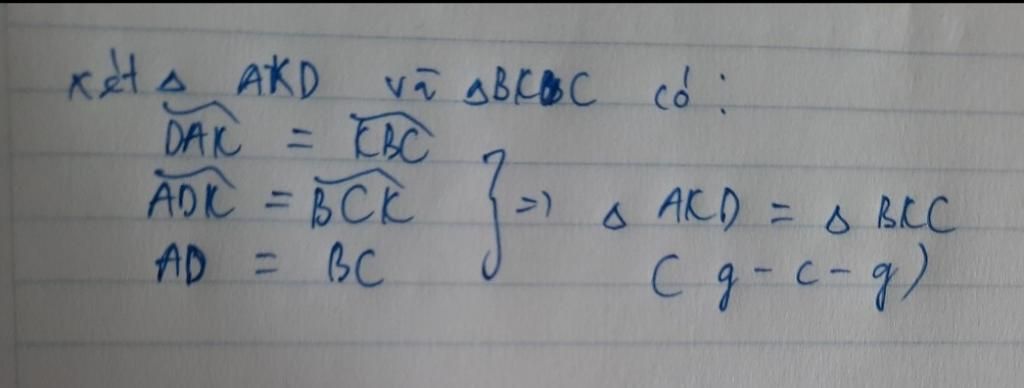 xét Δ AKD và ΔBKC có:
DAK = KBC
ADK = BCK } => Δ AKD = Δ BKC
AD = BC (g-c-g)